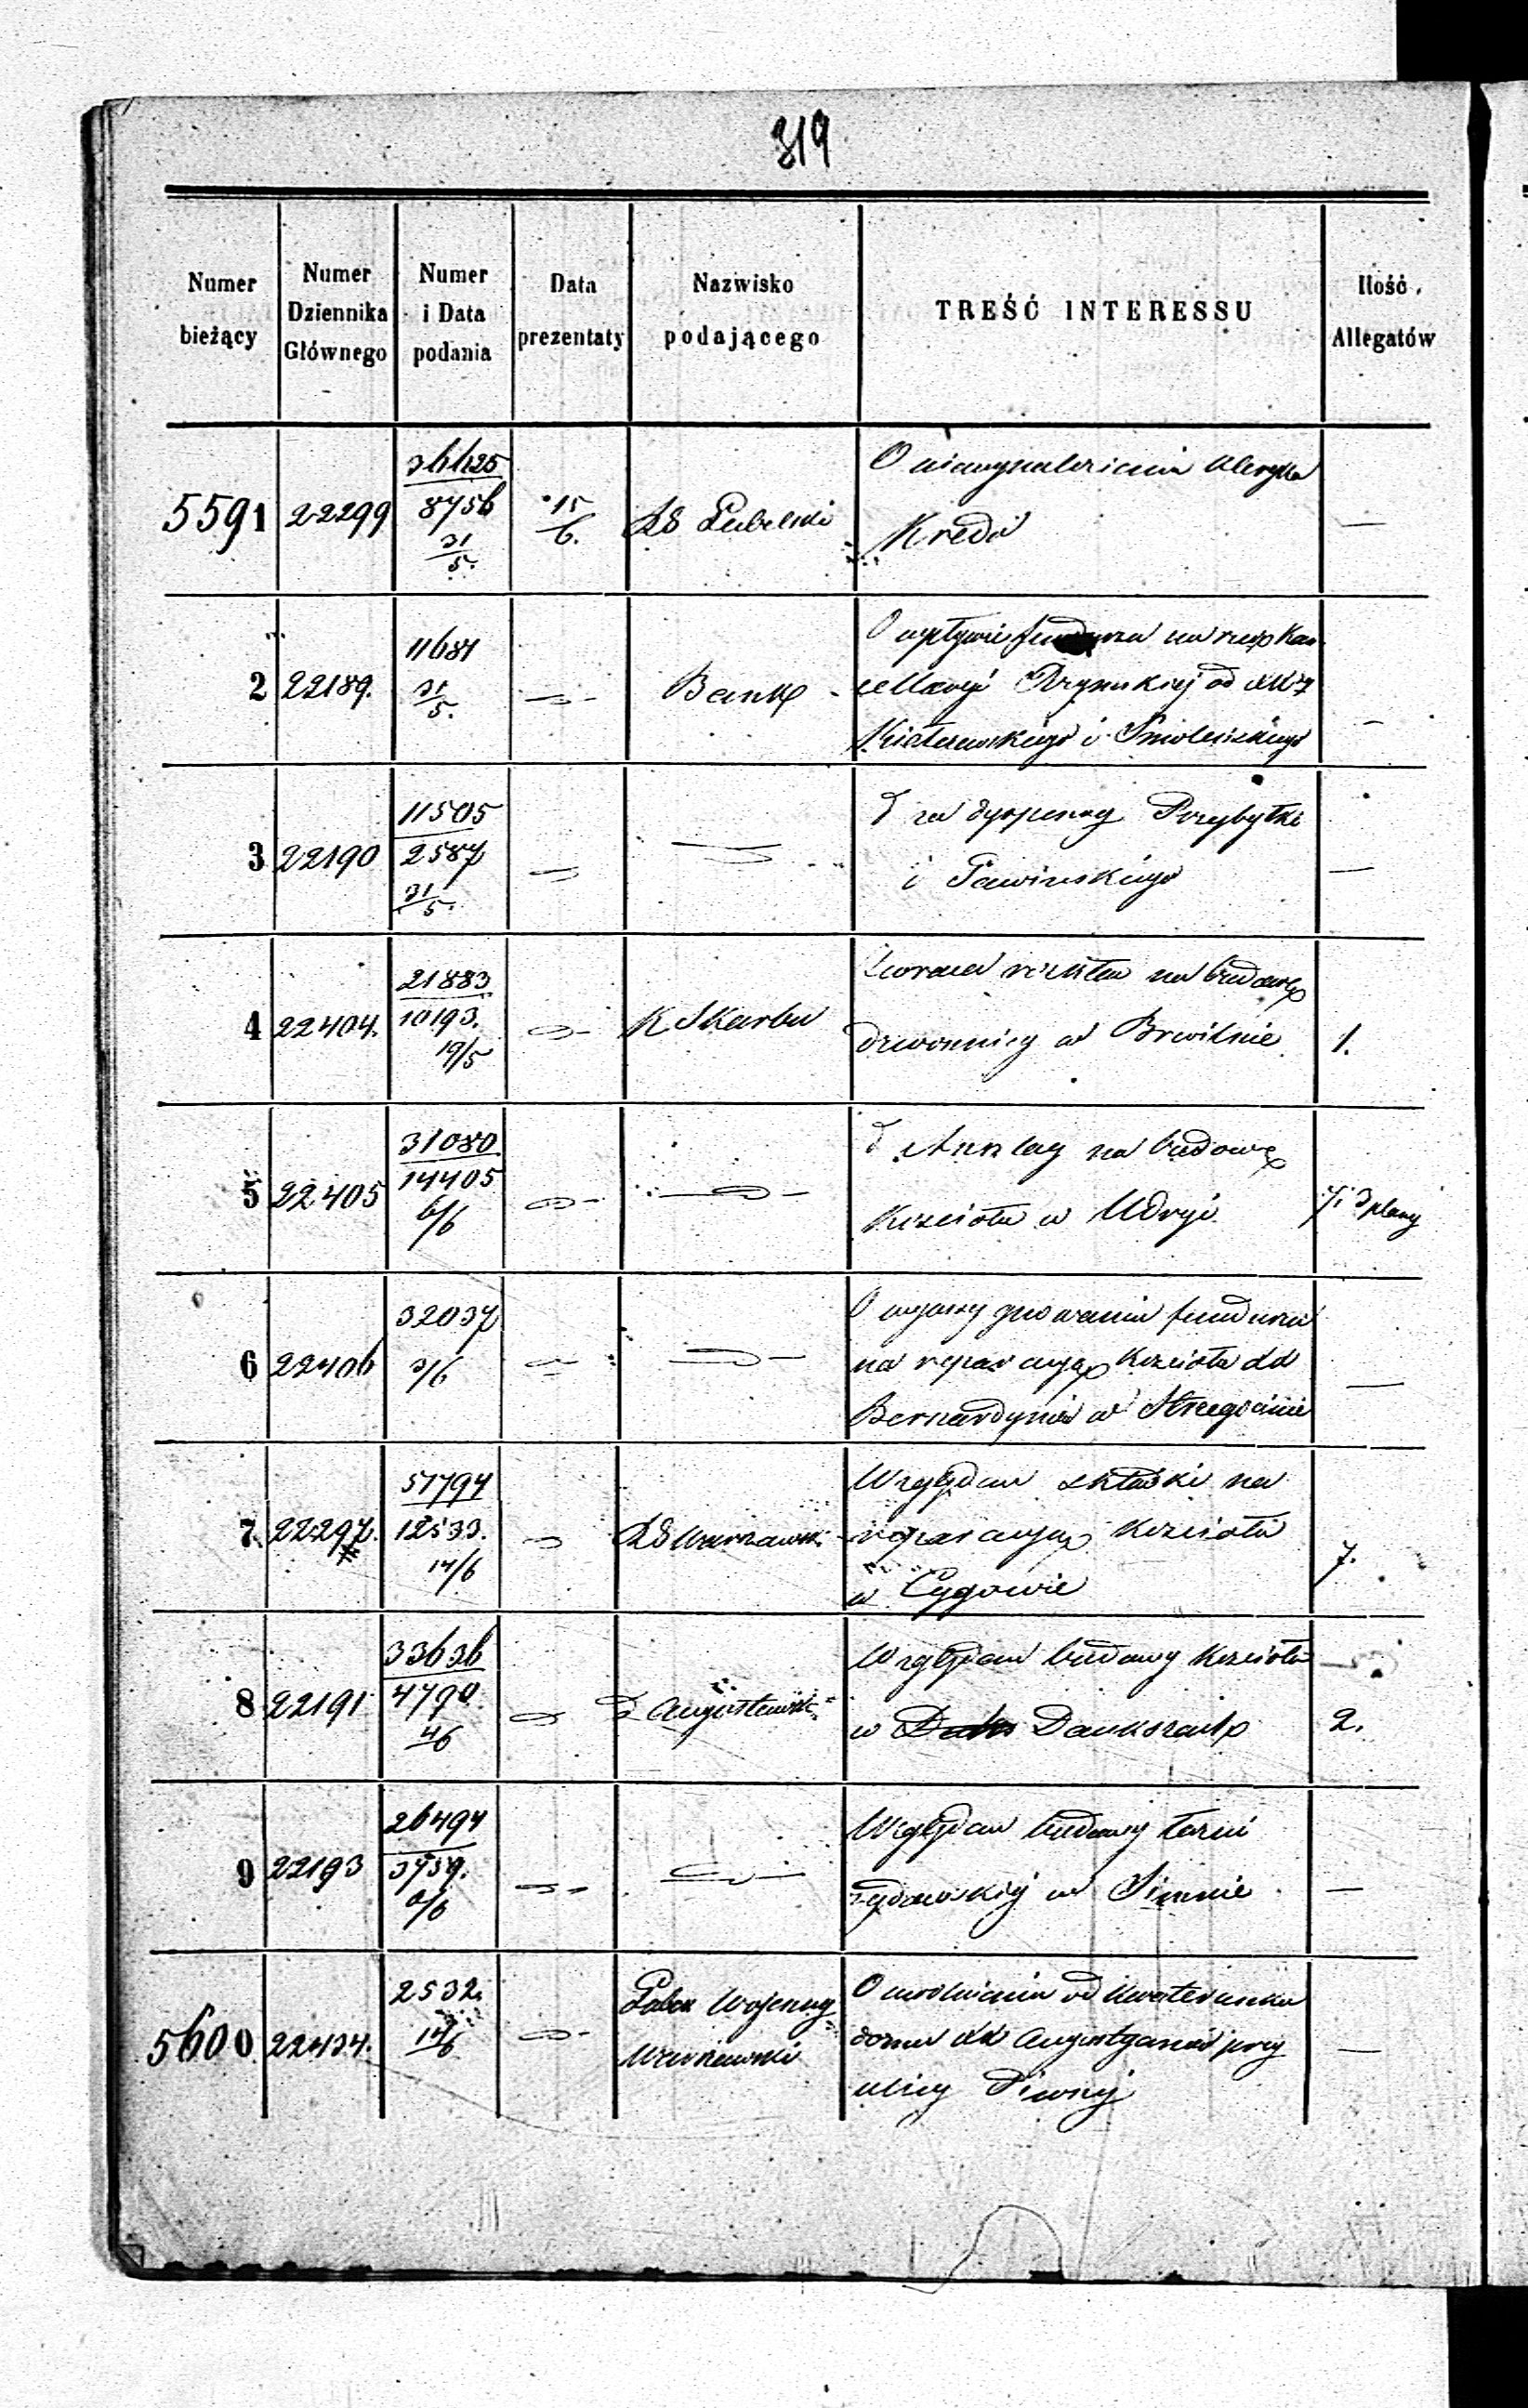 319
Numer bieżący
Numer Dziennika Głównego
Numer i Data podania
Data prezentaty
Nazwisko podającego
TREŚĆ INTERESSU
Ilość Allegatów
5591 22299 36625 8756 31/5. 15/6. Lubelski O niewynalezieniu kleryka
Kredo —
2 22189. 11681 31/5. — Bank O wpływie funduszu na rzecz Kan
cellaryi Rzymskiej od
i Smoleńskiego —
3 22190 11505 2587 31/5. — — za dyspensy Przybyłki
i Pawińskiego —
4 22404. 21883 10193. 19/5 — K Skarbu Zwraca rozkład na budowę
dzwonnicy w Brwilnie 1.
5 22405 31080 14405 6/6 — — Anszlag na budowę
Kościoła w Udryi 7. 3 plany
6 22406 32037 3/6 — — O wyasygnowaniu funduszu
na reparacyę Kościoła
Bernardynów w Strzegocinie —
7. 22297. 51794 12533. 14/6 — Warszawski Względem składki na
reparacyą Kościoła
w Cygowie 7.
8 22191 33636 4790 4/6 — Augustowski Względem budowy Kościoła
w Daukszach 2.
9 22193 26494 3739. — — Względem budowy łaźni
żydowskiej w Simnie —
5600 22434. 2532. 14/6 — Wojenny
Warszawski O uwolnieniu od kwaterunku
domu Augustyanów przy
ulicy Piwnej —